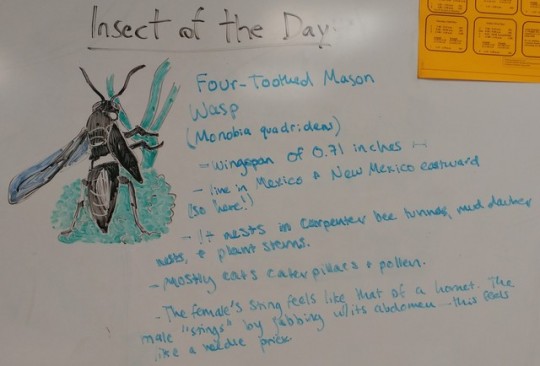 Insect of the Day
Four-Toothed Mason
Wasp
(Monobia quadridens)
- Wingspan of 0.71 inches
- Live in Mexico & New Mexico eastward
(so here!)
- It nests in carpenter bee tunnels, mud dauber
nests, & plant stems.
- Mostly eats caterpillars & pollen.
- The female's sting feels like that of a hornet. The
male "stings" by jabbing w/its abdomen - this feels
like a needle prick